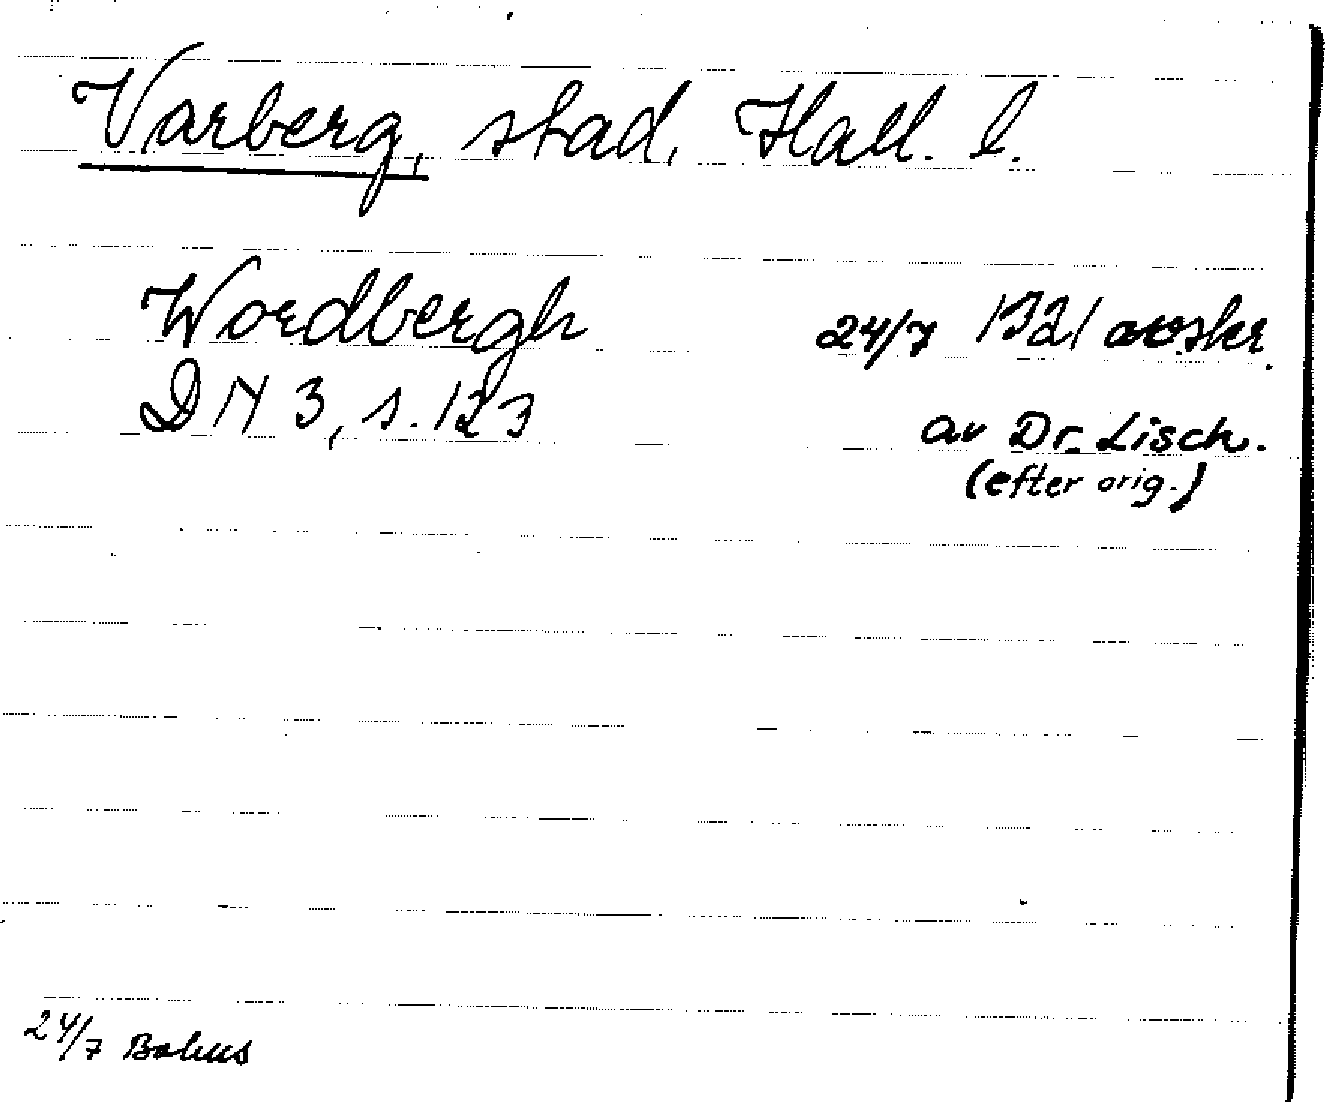 Varberg, stad, Hall. l.
Wordbergh 24/7 1321 avskr.
DN 3, s. 123 av Dr. Lisch.
(efter orig.)
24/7 Bohus